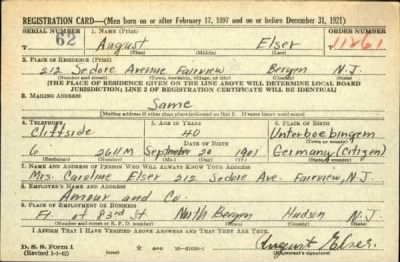 REGISTRATION CARD—(Men born on or after February 17, 1897 and on or before December 31, 1921)
SERIAL NUMBER 1. NAME (Print) ORDER NUMBER
62 August Elser 11261
(First) (Middle) (Last)
2. PLACE OF RESIDENCE (Print)
212 Sedore Avenue Fairview Bergen N.J.
(Number and street) (Town, township, village, or city) (County) (State)
[THE PLACE OF RESIDENCE GIVEN ON THE LINE ABOVE WILL DETERMINE LOCAL BOARD
JURISDICTION; LINE 2 OF REGISTRATION CERTIFICATE WILL BE IDENTICAL]
3. MAILING ADDRESS
Same
[Mailing address if other than place indicated on line 2. If same insert word same]
4. TELEPHONE 5. AGE IN YEARS 6. PLACE OF BIRTH
Cliffside 40 Unterboebingem
DATE OF BIRTH (Town or county)
6 2611M September 20 1901 Germany (Citizen)
(Exchange) (Number) (Mo.) (Day) (Yr.) (State or country)
7. NAME AND ADDRESS OF PERSON WHO WILL ALWAYS KNOW YOUR ADDRESS
Mrs. Caroline Elser 212 Sedore Ave. Fairview, N.J.
8. EMPLOYER'S NAME AND ADDRESS
Armour and Co.
9. PLACE OF EMPLOYMENT OR BUSINESS
Ft. of 83rd St North Bergen Hudson N.J.
(Number and street or R. F. D. number) (Town) (County) (State)
I AFFIRM THAT I HAVE VERIFIED ABOVE ANSWERS AND THAT THEY ARE TRUE.
D. S. S. Form 1
(Revised 1-1-42) August Elser
(Registrant's signature)